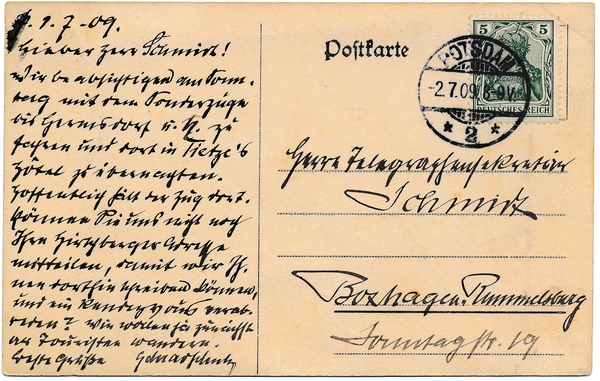 1.7.09.
Lieber Herr Schmidt!
Wir beabsichtigen am Sonn-
tag mit dem Sonderzuge
bis Hermsdorf u. K. zu
fahren und dort in Tietze's
Hôtel zu übernachten.
Hoffentlich hält der Zug dort.
Können Sie uns nicht noch
Ihre Hirschberger Adresse
mitteilen, damit wir Ih-
nen dorthin schreiben können,
und ein Rendezvous verab-
reden? Wir wollen ja zunächst
als Touristen wandern.
Beste Grüße
Postkarte
5 5
DEUTSCHES REICH
POTSDAM
-2.7.09. 8-9V.
* 2 *
Herrn Telegraphensekretär
Schmidt
Boxhagen-Rummelsburg
Sonntagstr. 19